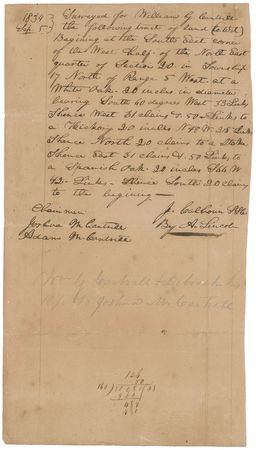 1834
Sep. 5
Surveyed for William G. Cantrall
the following tract of land (to wit)
Begining at the South East corner
of the West half of the North East
quarter of Section 20 in Township
17 North of Range 5 West at a
White Oak 20 inches in diameter
bearing South 60 degrees West 53 Links
Thence West 31 chains & 50 Links to
a Hickory 20 inches N 48 W 25 Links
Thence North 20 chains to a Stake
Thence East 31 chains & 50 Links to
a Spanish Oak 20 inches S 60 W
42 Links Thence South 20 chains
to the begining
Chainmen
J. Calhoun
Joshua M Cantrall
By A. Lincoln
Adams M. Cantrall
G Cantrall & Deborah
To Joshua M. Cantrall